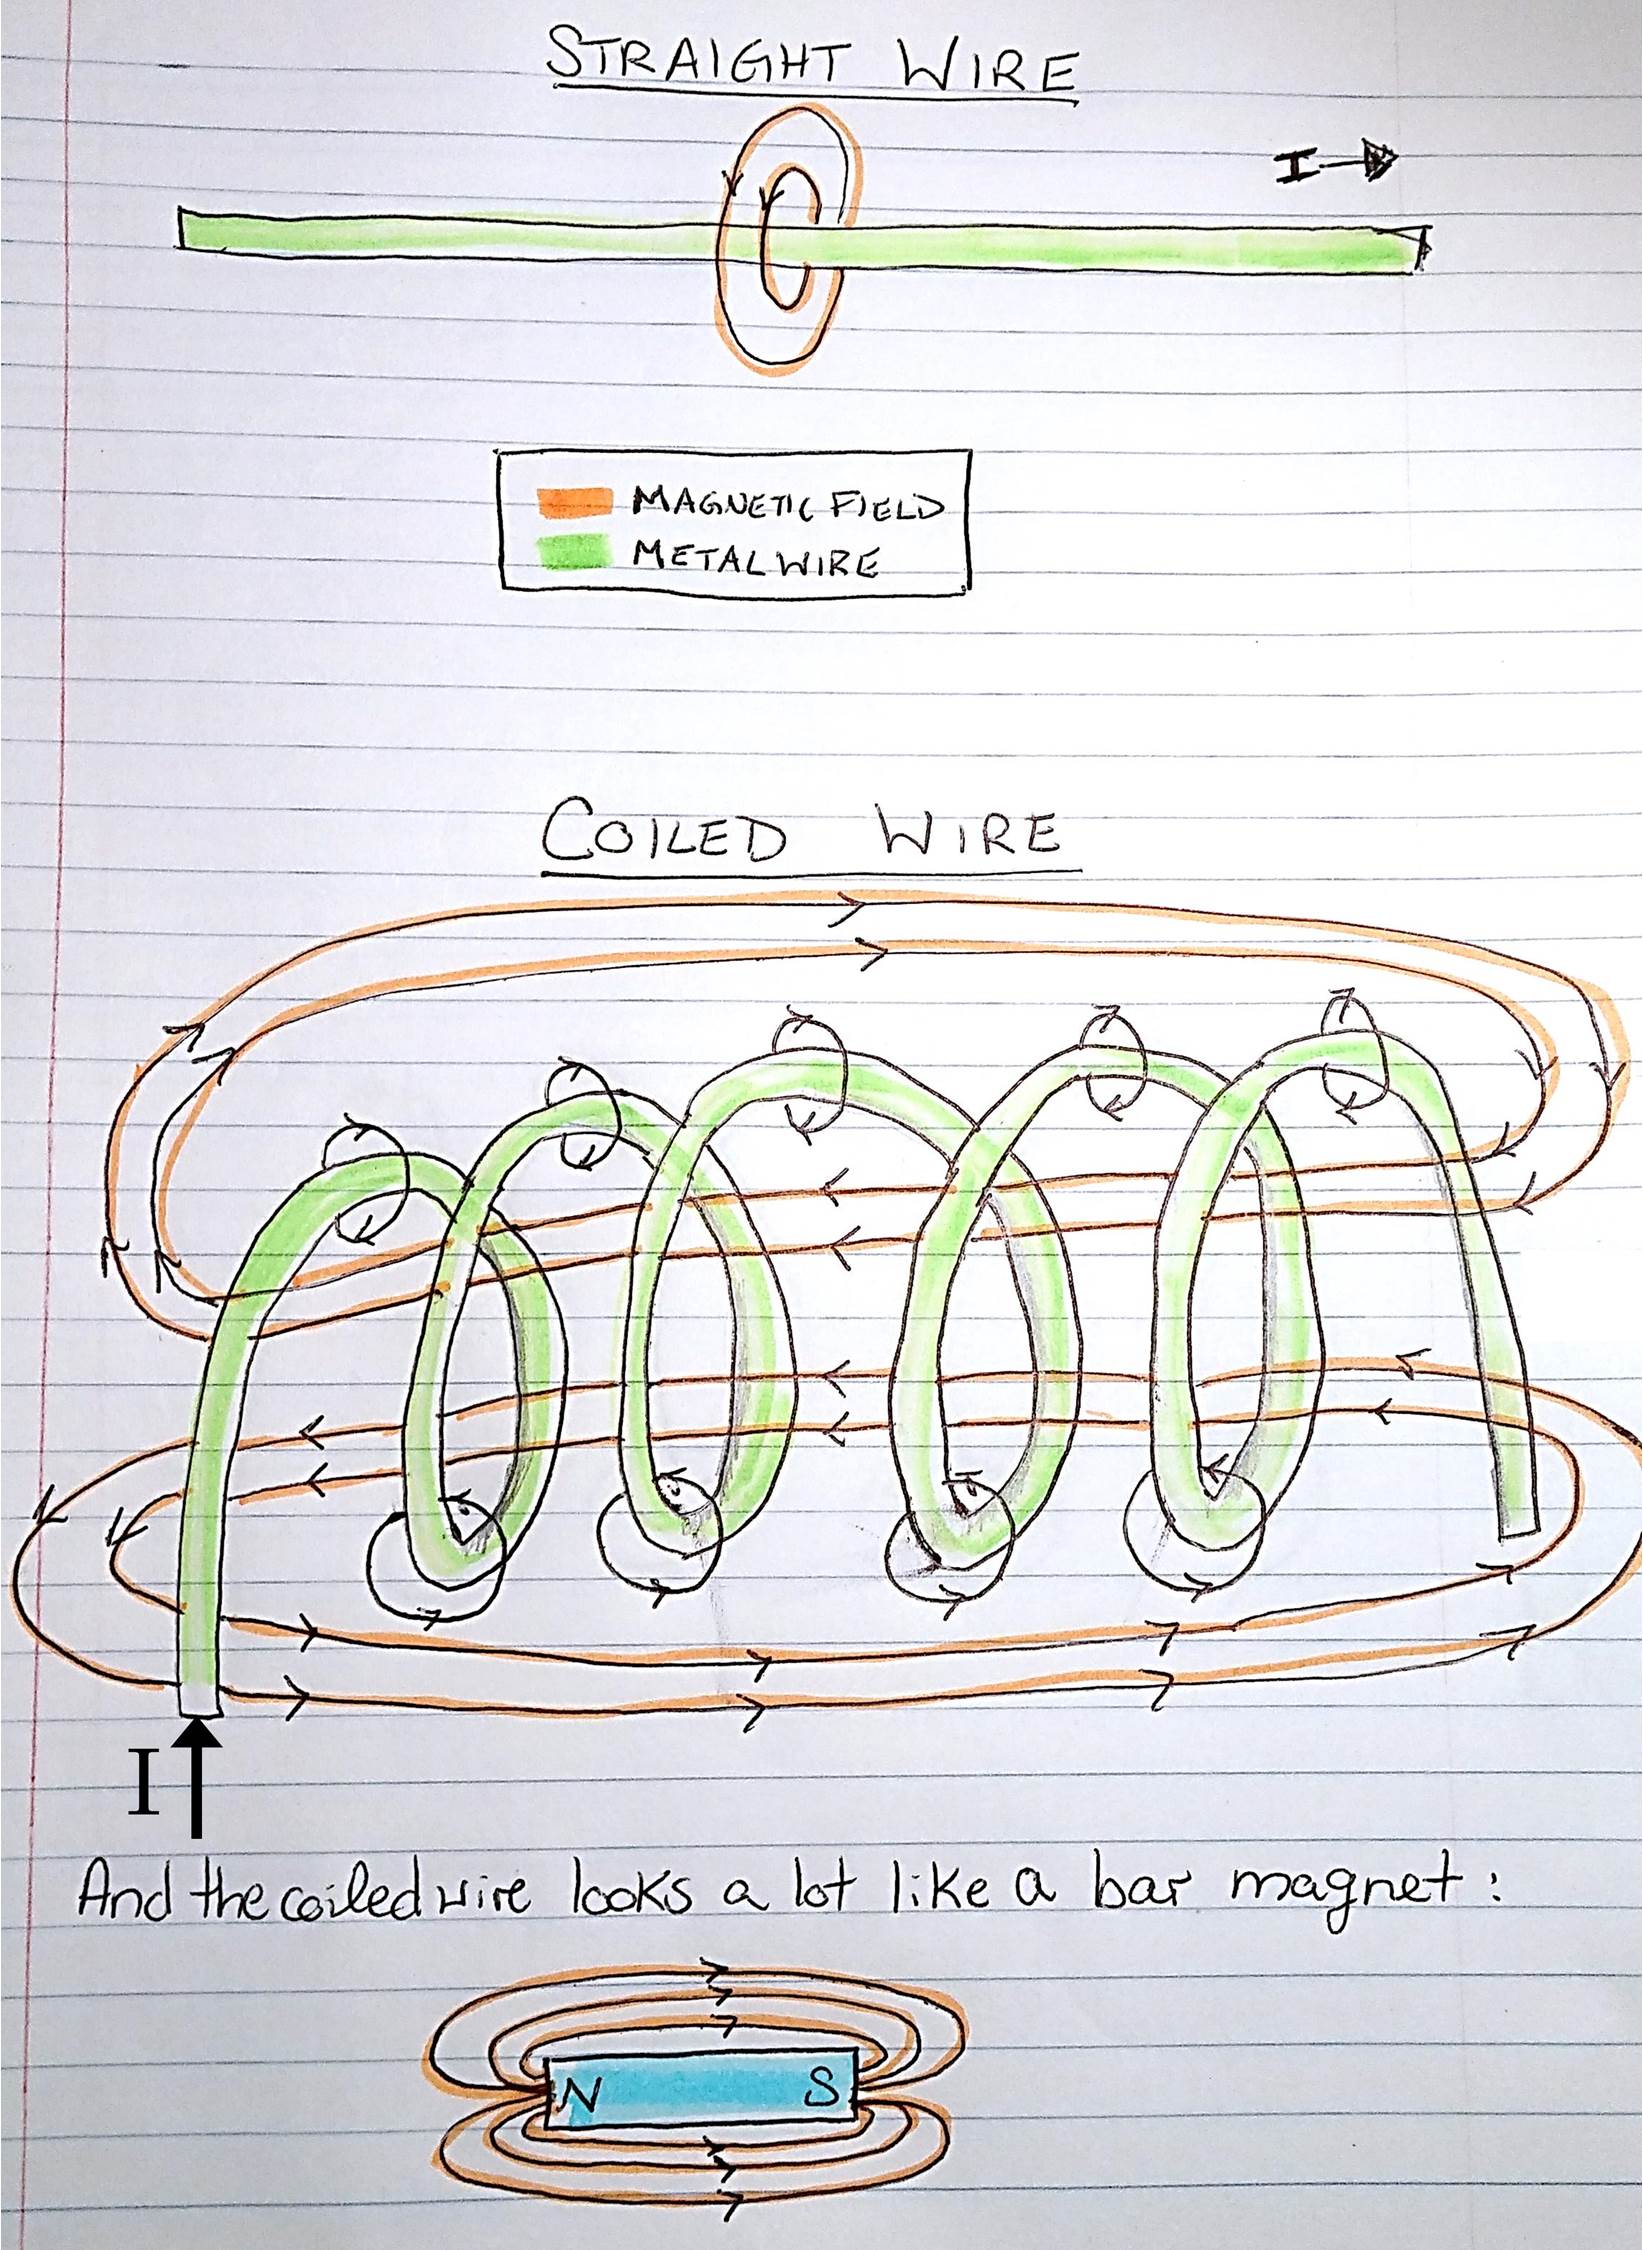 STRAIGHT WIRE
I
MAGNETIC FIELD
METAL WIRE
COILED WIRE
I
And the coiled wire looks a lot like a bar magnet:
N S